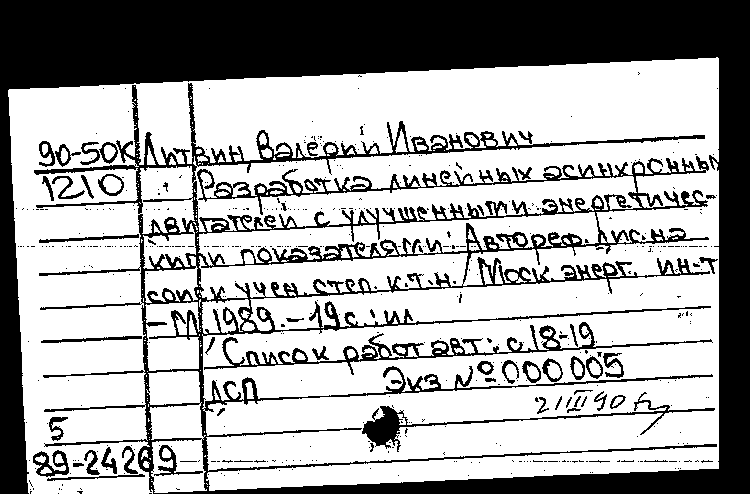 90-50К Литвин, Валерий Иванович
1210 Разработка линейных асинхронных
двигателей с улучшенными энергетичес-
кими показателями: Автореф. дис. на
соиск учен. степ. к.т.н. / Моск. энерг. ин-т
- М., 1989. - 19 с.: ил
Список работ авт.: с. 18-19
ДСП Экз № 000005
21 III 90
5
89-24269